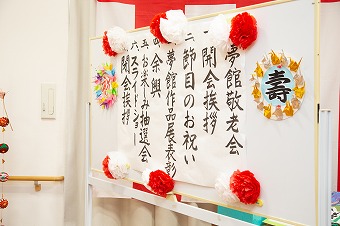 夢館敬老会
一 開会挨拶
二 節目のお祝い
三 夢館作品展表彰
四 余興
五 お楽しみ抽選会
六 スライドショー
閉会挨拶
寿